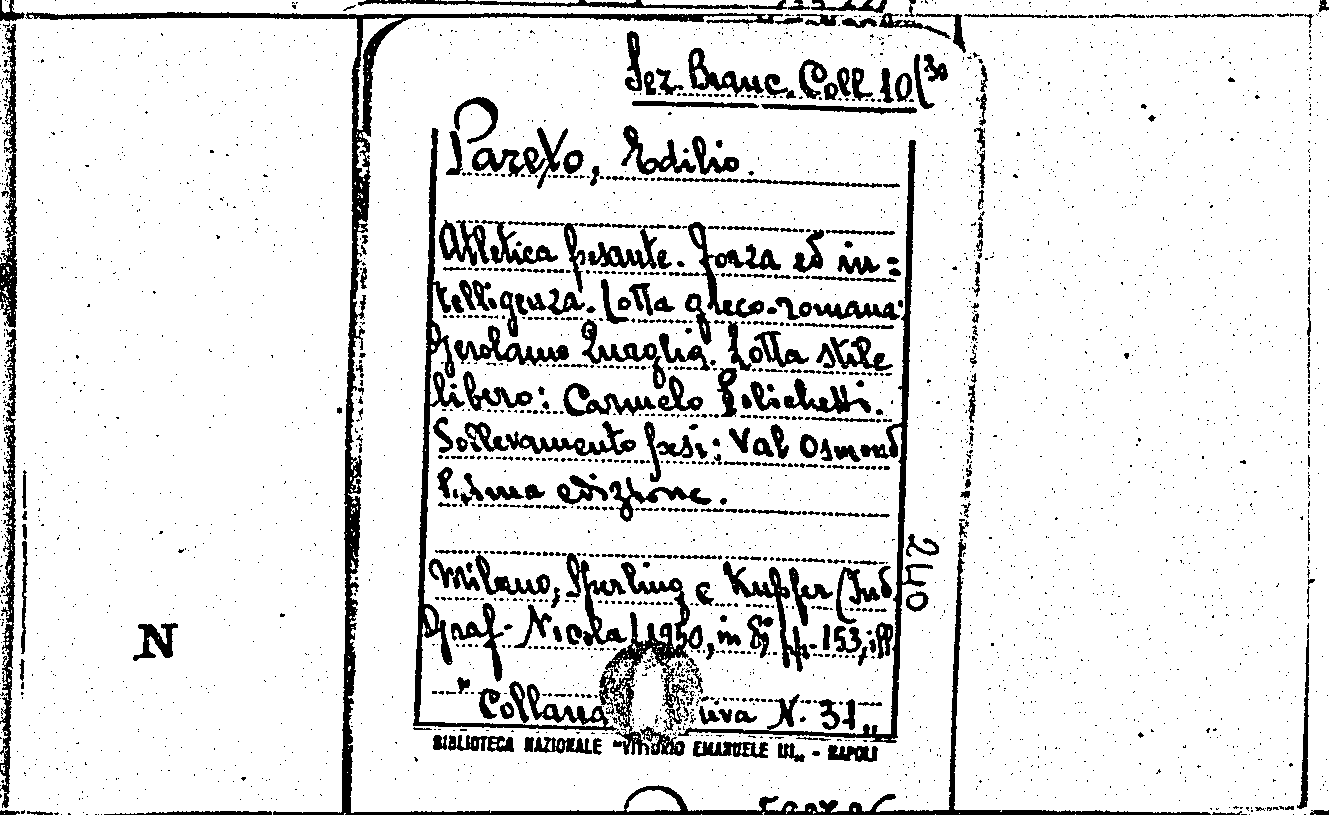 Sez. Branc. Coll 10(30
Pareto, Edilio.
Atletica pesante. Forza ed in=
telligenza. Lotta greco-romana:
Gerolamo Quaglia. Lotta stile
libero: Carmelo
Sollevamento pesi: Val Osmond
edizione.
240
Milano, Sperling e Kupfer (Ind
Graf. Nicola) 1950, in 8°, pp. 153, ill
N
"Collana N. 31"
BIBLIOTECA NAZIONALE "VITTORIO EMANUELE III" - NAPOLI